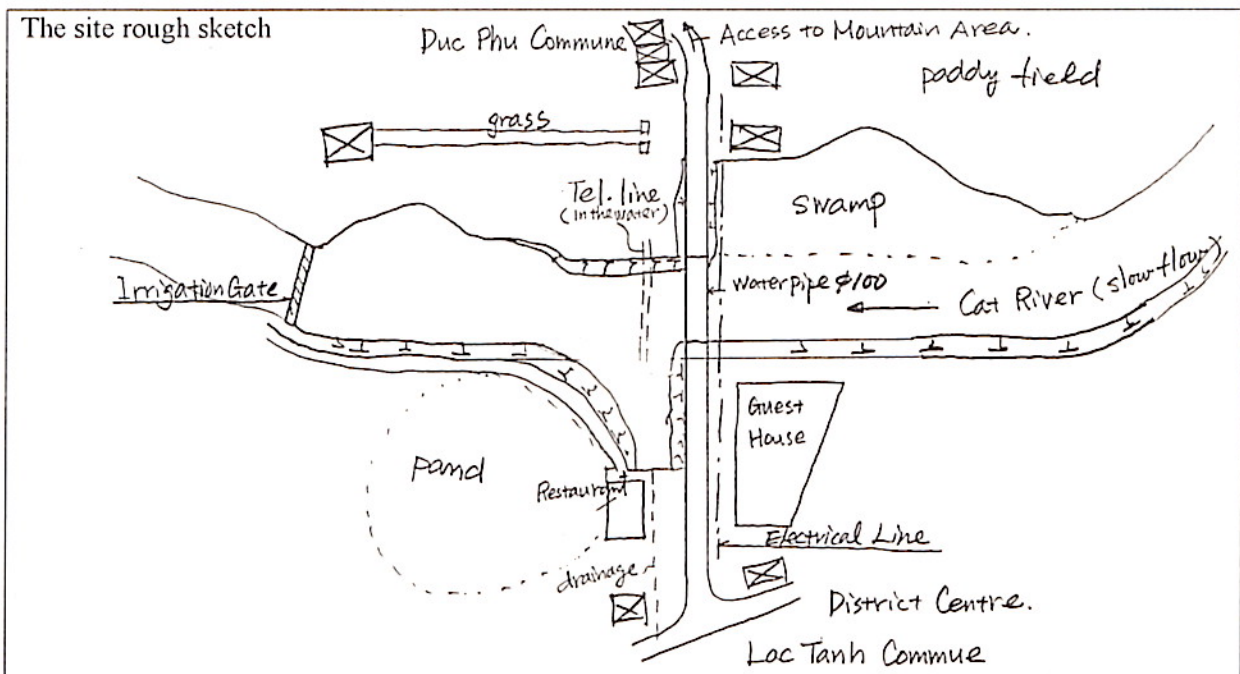 The site rough sketch
Duc Phu Commune
Access to Mountain Area.
paddy field
grass
Tel. line
(in the water)
Swamp
Irrigation Gate
Water pipe φ100
Cat River (slow flow)
Guest
House
Pond
Restaurant
Electrical Line
drainage
District Centre.
Loc Tanh Commue